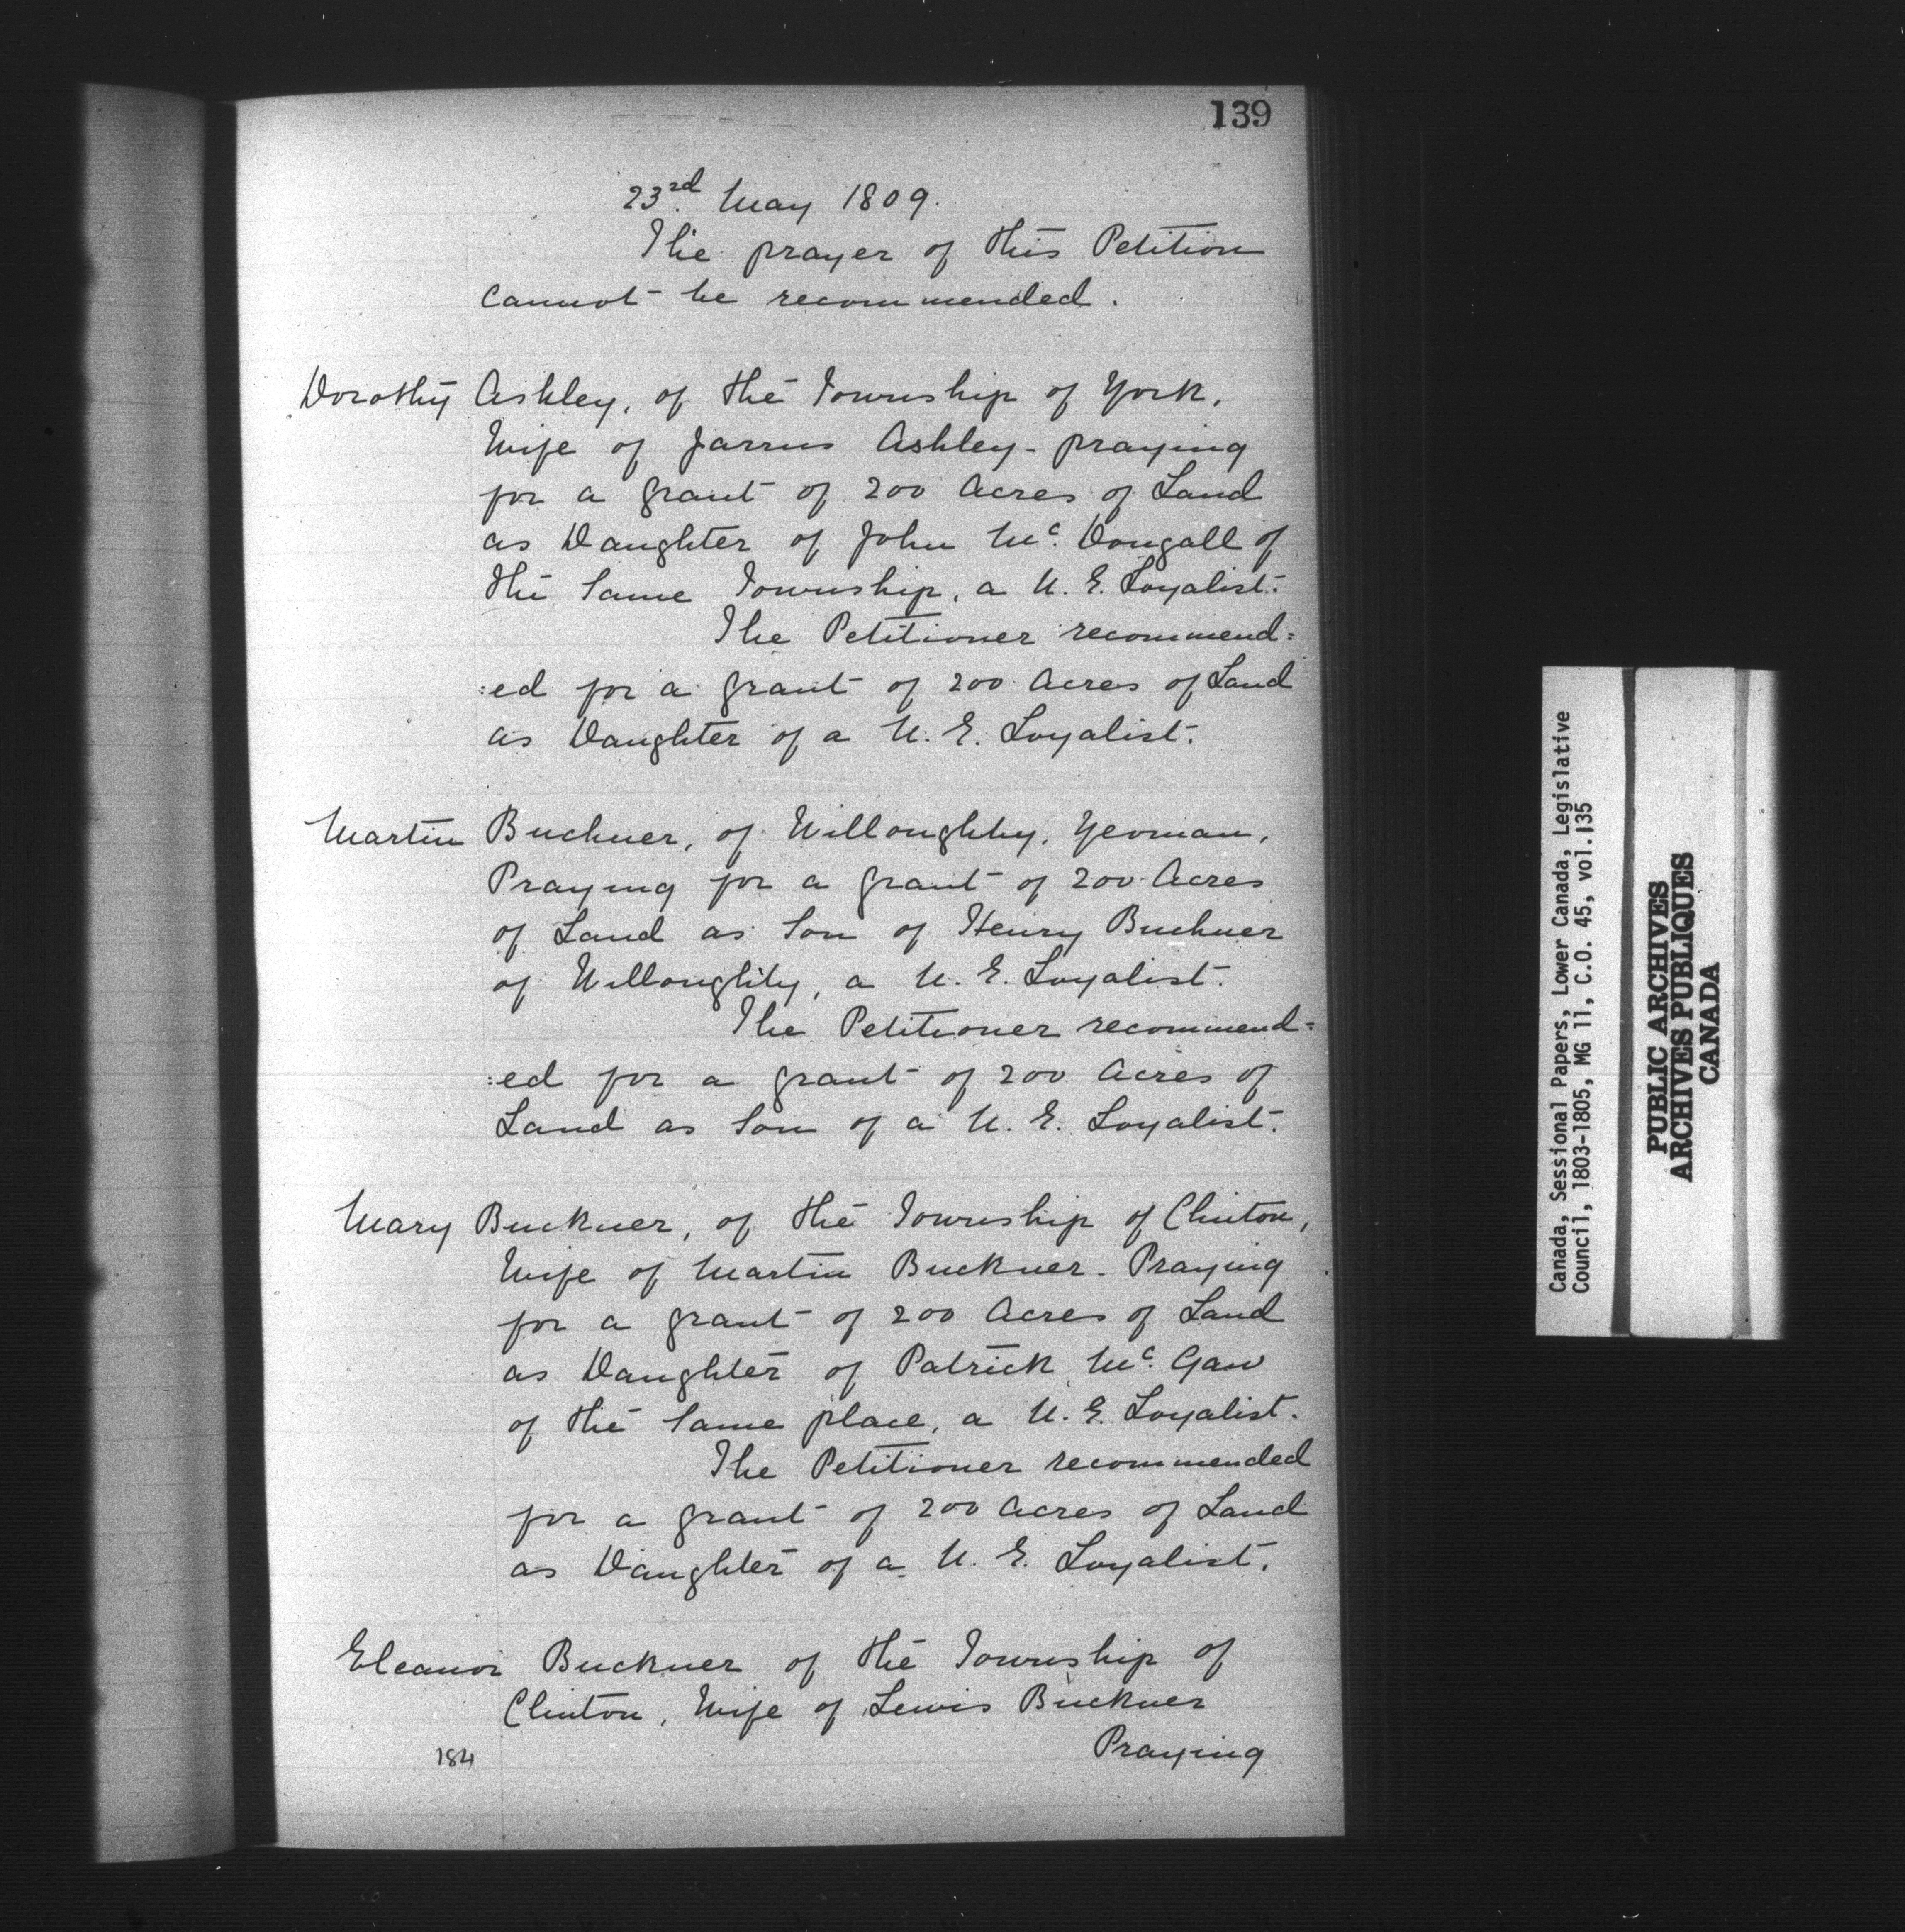 139
23rd. May 1809.
The prayer of this Petition
cannot be recommended.
Dorothy Ashley, of the Township of York,
Wife of Jarrus Ashley - praying
for a grant of 200 Acres of Land
as Daughter of John Mc. Dougall of
the same Township, a U. E. Loyalist.
The Petitioner recommend=
:ed for a grant of 200 Acres of Land
as Daughter of a U. E. Loyalist.
Martin Buchner, of Willoughby, Yeoman,
Praying for a grant of 200 Acres
of Land as Son of Henry Buchner
of Willoughby, a U. E. Loyalist.
The Petitioner recommend=
:ed for a grant of 200 Acres of
Land as Son of a U. E. Loyalist.
Mary Buckner, of the Township of Clinton,
Wife of Martin Buckner - Praying
for a grant of 200 Acres of Land
as Daughter of Patrick Mc. Gaw
of the same place, a U. E. Loyalist.
The Petitioner recommended
for a grant of 200 Acres of Land
as Daughter of a U. E. Loyalist.
Eleanor Buckner of the Township of
Clinton, Wife of Lewis Buckner
Praying
184
Canada, Sessional Papers, Lower Canada, Legislative
Council, 1803-1805, MG 11, C.O. 45, vol.135
PUBLIC ARCHIVES
ARCHIVES PUBLIQUES
CANADA